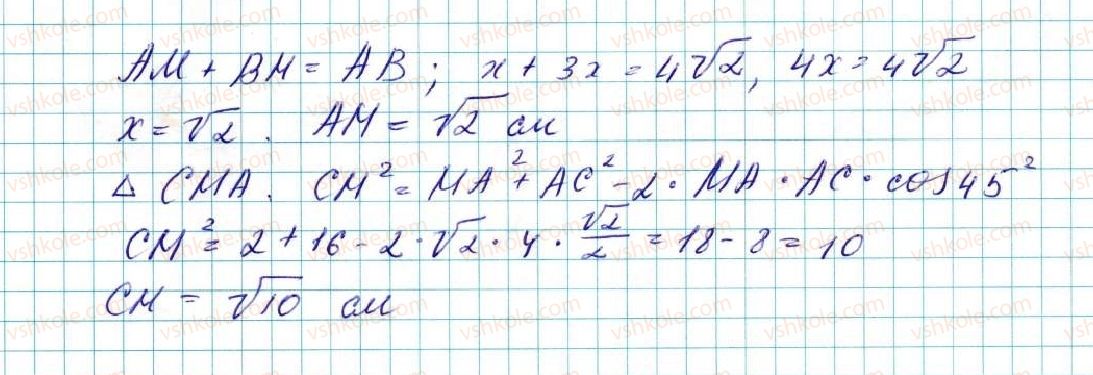 AM + BM = AB; x + 3x = 4√2, 4x = 4√2
x = √2. AM = √2 см
△ CMA. CM² = MA² + AC² - 2 · MA · AC · cos 45²
CM² = 2 + 16 - 2 · √2 · 4 · √2/2 = 18 - 8 = 10
CM = √10 см